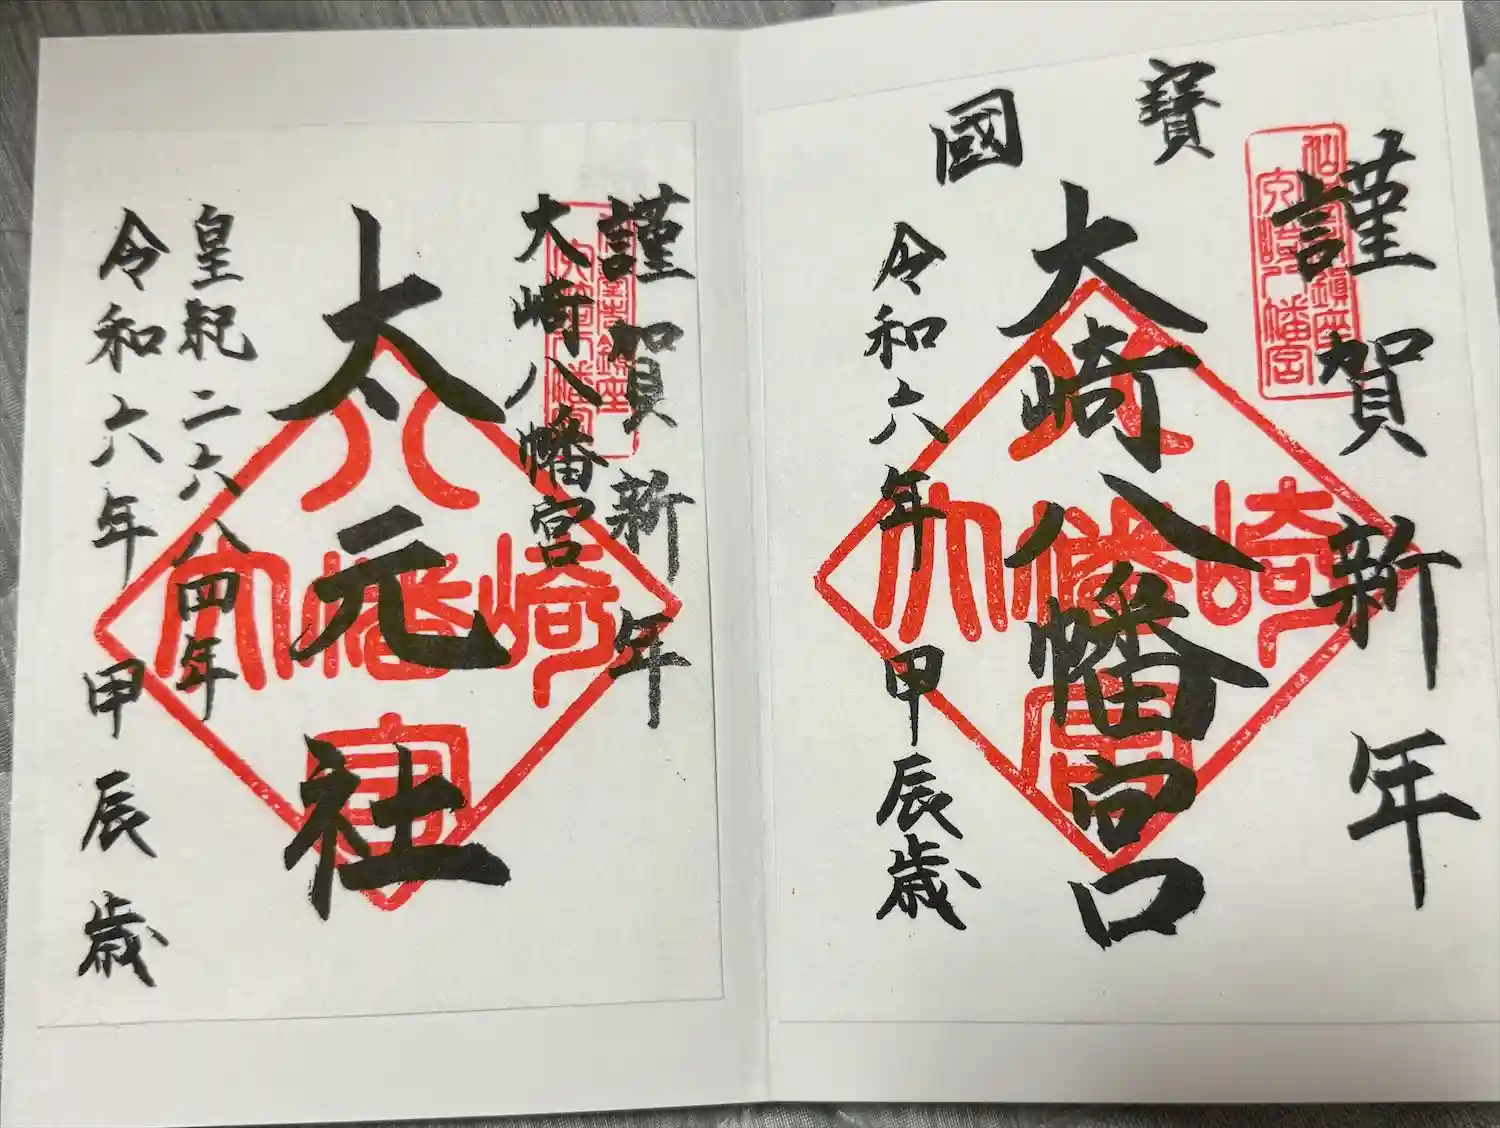 謹賀新年
寶國
大崎八幡宮
令和六年甲辰歳
仙臺鎮座
大崎八幡宮
大崎八幡宮
謹賀新年
大崎八幡宮
太元社
皇紀二六八四年
令和六年甲辰歳
仙臺鎮座
大崎八幡宮
大崎八幡宮